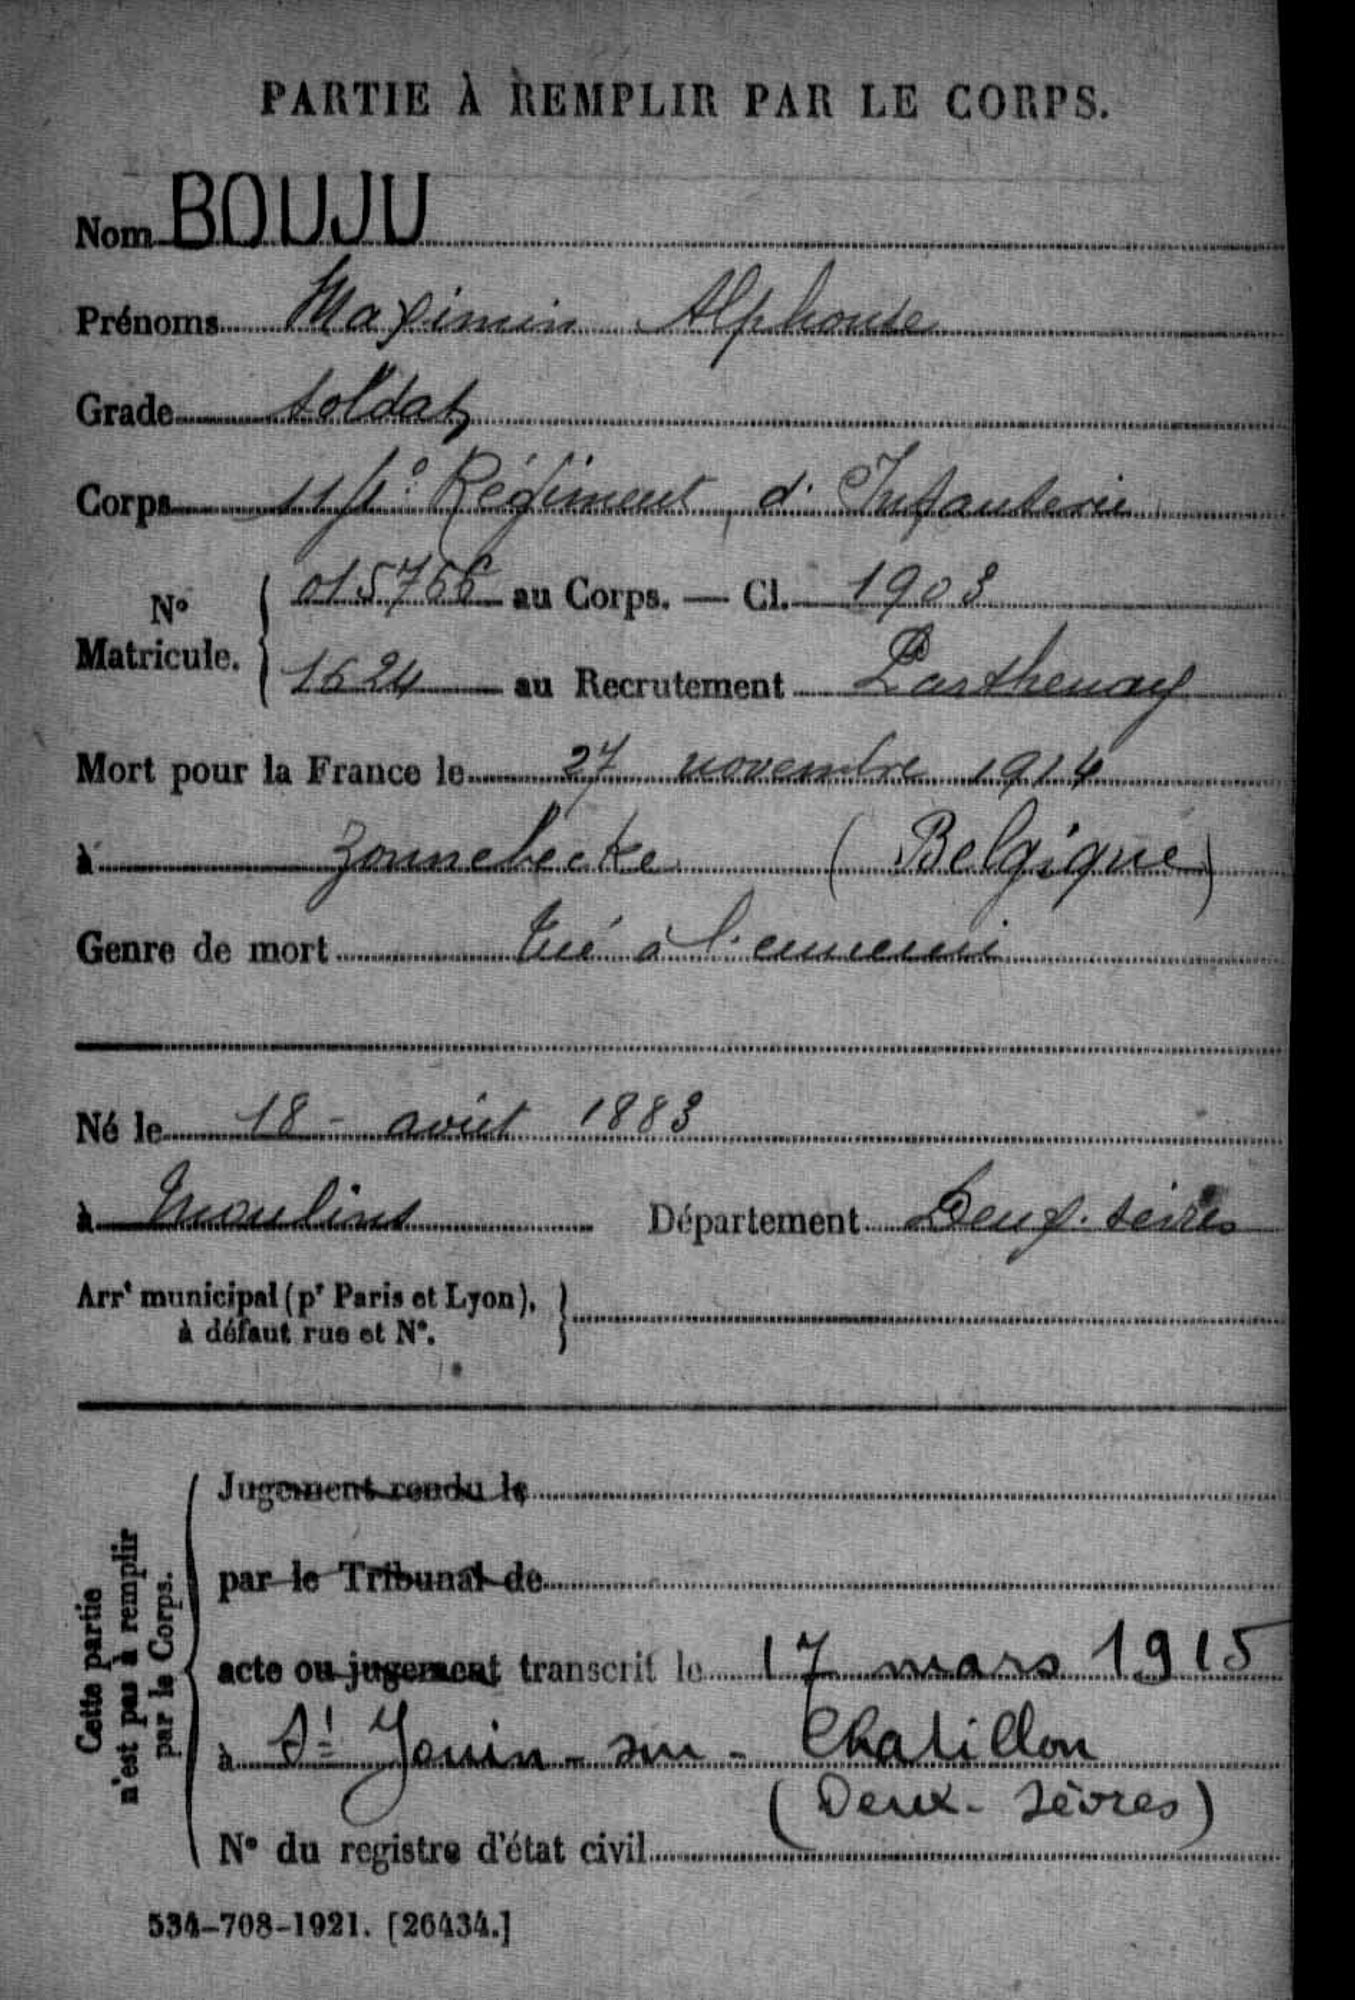 PARTIE À REMPLIR PAR LE CORPS.
Nom BOUJU
Prénoms Maximin Alphonse
Grade soldat
Corps Régiment d'Infanterie
N° Matricule. 015766 au Corps. — Cl. 1903
1624 au Recrutement Parthenay
Mort pour la France le 27 novembre 1914
à Zonnebecke (Belgique)
Genre de mort tué à l'ennemi
Né le 18 - août 1883
à Moulins Département Deux-Sèvres
Arrt municipal (pr Paris et Lyon),
à défaut rue et N°.
Cette partie
n'est pas à remplir
par le Corps.
Jugement rendu le
par le Tribunal de
acte ou jugement transcrit le 17 mars 1915
à St Jouin-sur-Chatillon
(Deux-Sèvres)
N° du registre d'état civil
534-708-1921. [26434.]